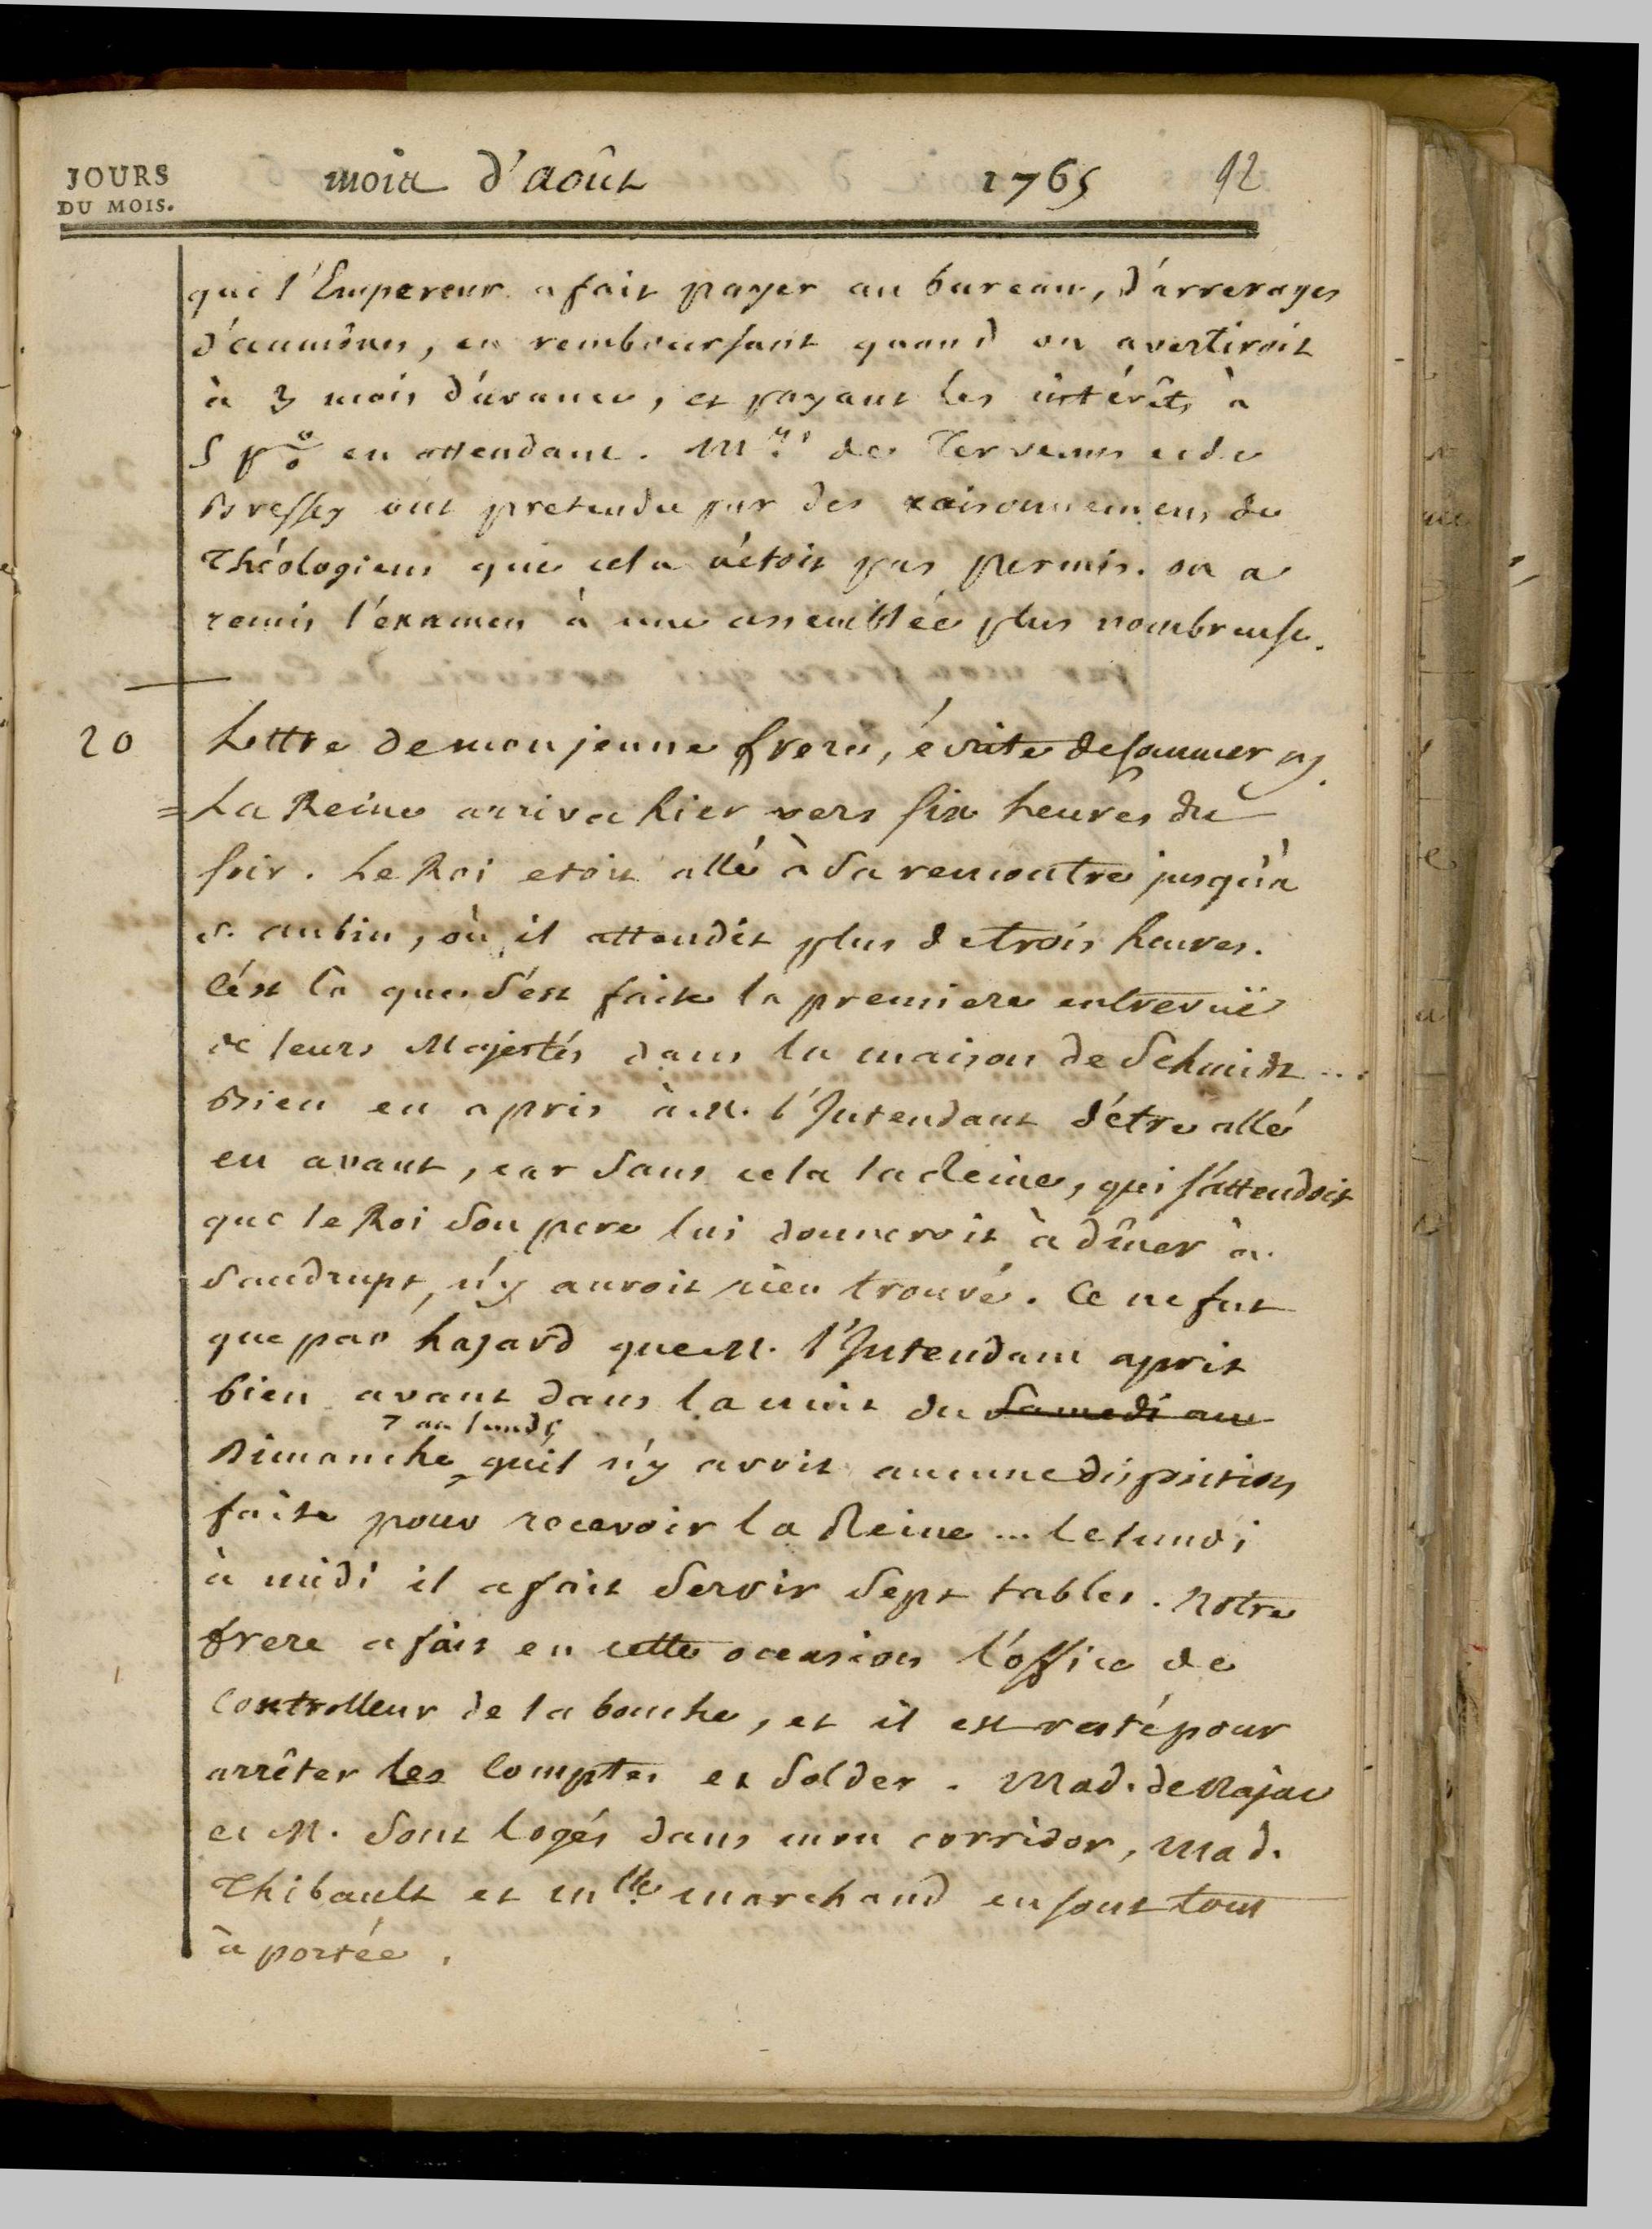 JOURS
DU MOIS.
mois d'aoûst 1765 92
que l'Empereur a fait payer au bureau, d'arrerages
d'aumônes, en remboursant quand on avertiroit
à 3 mois d'avance, et payant les intérêts à
5 p% en attendant. Mrs. des Tervenus et de
Bressey ont pretendu par des raisonnemens de
Théologiens que cela n'étoit pas permis. on a
remis l'examen à une assemblée plus nombreuse.
20 Lettre de mon jeune frere, écrite de Commercy.
= La Reine arriva hier vers six heures du
soir. Le Roi etoit allé à sa rencontre jusqu'à
S. aubin, où il attendit plus de trois heures.
C'est là que s'est faite la premiere entrevuë
de leurs Majestés dans la maison de Schmidt...
Bien en a pris à M. l'Intendant d'être allé
en avant, car sans cela la Reine, qui s'attendoit
que le Roi son pere lui donneroit à dîner à
Saudrupt, n'y auroit rien trouvé. Ce ne fut
que par hazard que M. l'Intendant aprit
bien avant dans la nuit du Samedi au
7 au lundi
Dimanche qu'il n'y avoit aucune disposition
faite pour recevoir la Reine... le lundi
à midi il a fait servir sept tables. Notre
frere a fait en cette occasion l'office de
Controlleur de la bouche, et il est resté pour
arrêter les Comptes et solder. Mad. de Najac
et M. sont logés dans mon corridor, Mad.
Thibault et Mlle. marchand en sont tout
à portée.